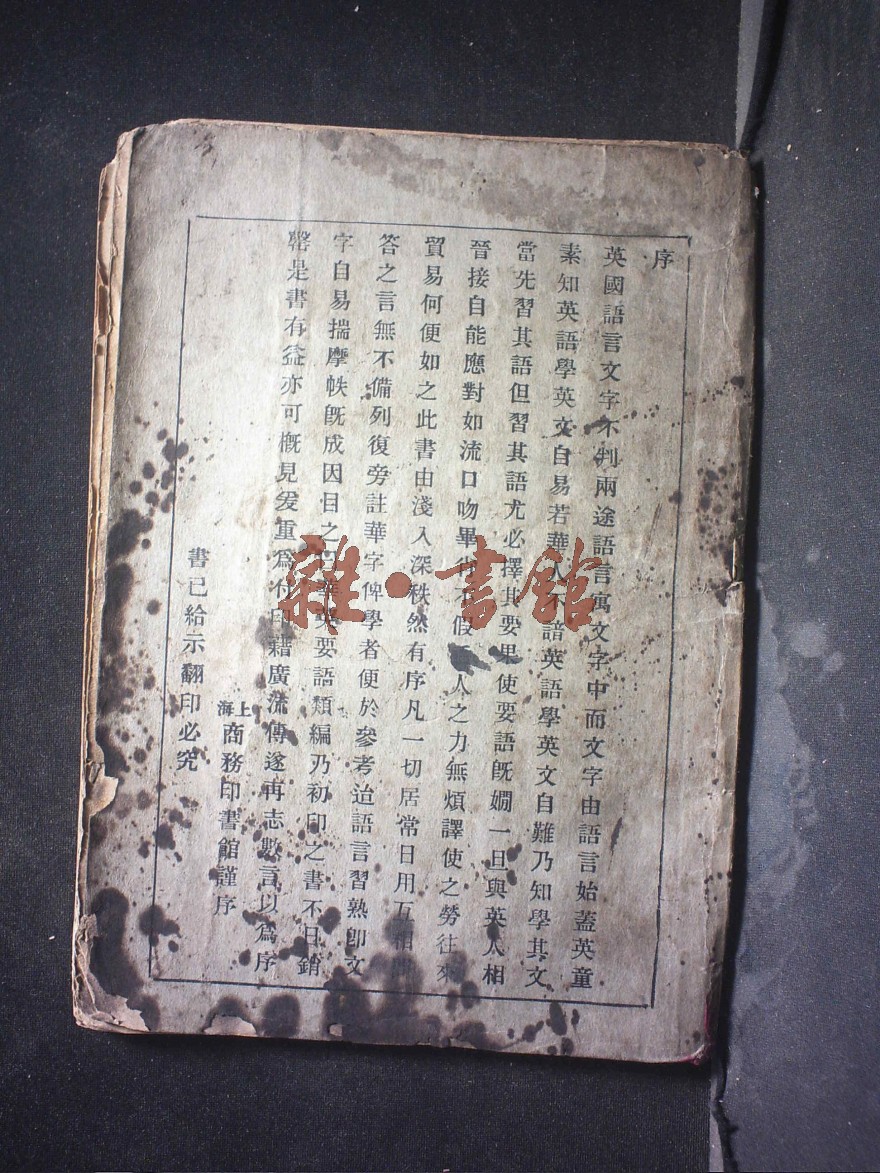 序
英國語言文字不判兩途語言寓文字中而文字由語言始蓋英童
素知英語學英文自易若華人不諳英語學英文自難乃知學其文
當先習其語但習其語尤必擇其要果使要語旣嫺一旦與英人相
晉接自能應對如流口吻畢肖不假人之力無煩譯使之勞往來
貿易何便如之此書由淺入深秩然有序凡一切居常日用互相
答之言無不備列復旁註華字俾學者便於參考迨語言習熟卽文
字自易揣摩帙旣成因目之曰要語類編乃初印之書不日銷
罄是書有益亦可槪見爰重爲付印藉廣流傳遂再志數言以爲序
上海商務印書館謹序
書已給示翻印必究
雜·書館